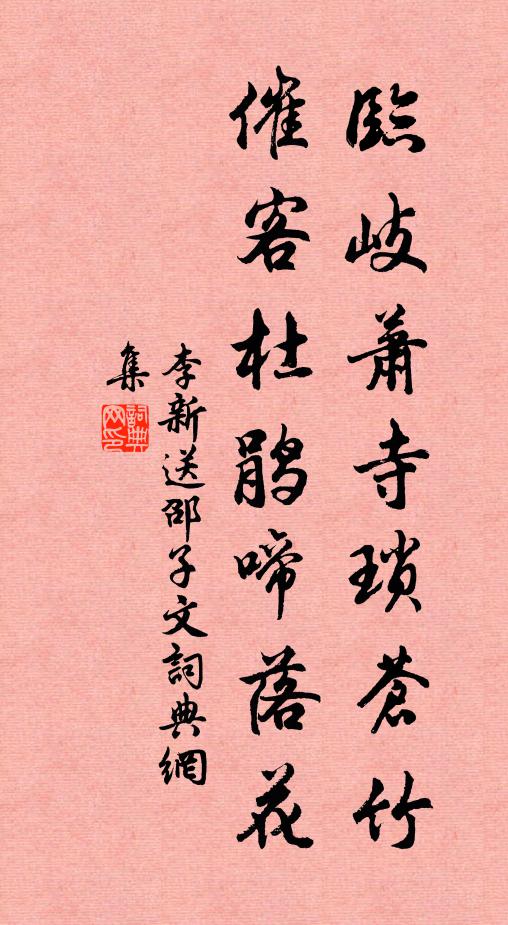 臨岐蕭寺瑣蒼竹
催客杜鵑啼落花
李新送邵子文詞典網
集
詞典
網印